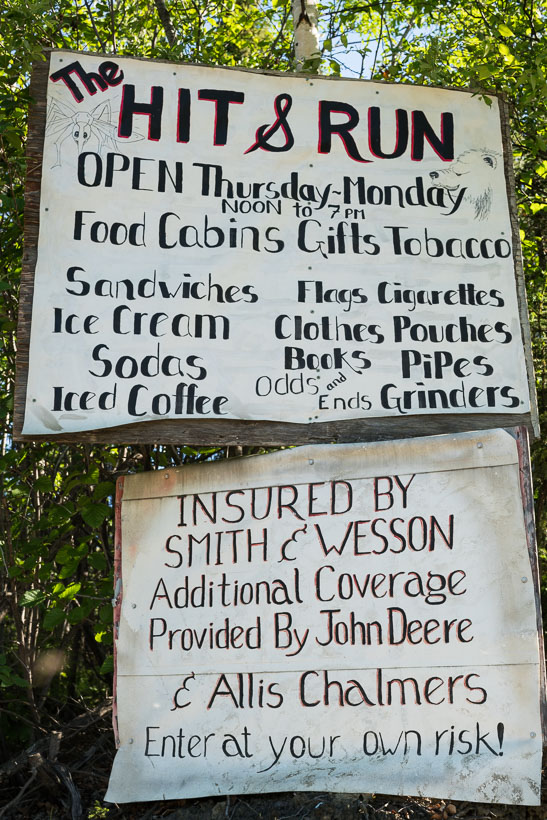 The HIT & RUN
OPEN Thursday-Monday
NOON to 7 PM
Food Cabins Gifts Tobacco
Sandwiches Flags Cigarettes
Ice Cream Clothes Pouches
Sodas Books PiPes
Iced Coffee Odds and Ends Grinders
INSURED BY
SMITH & WESSON
Additional Coverage
Provided By John Deere
& Allis Chalmers
Enter at your own risk!